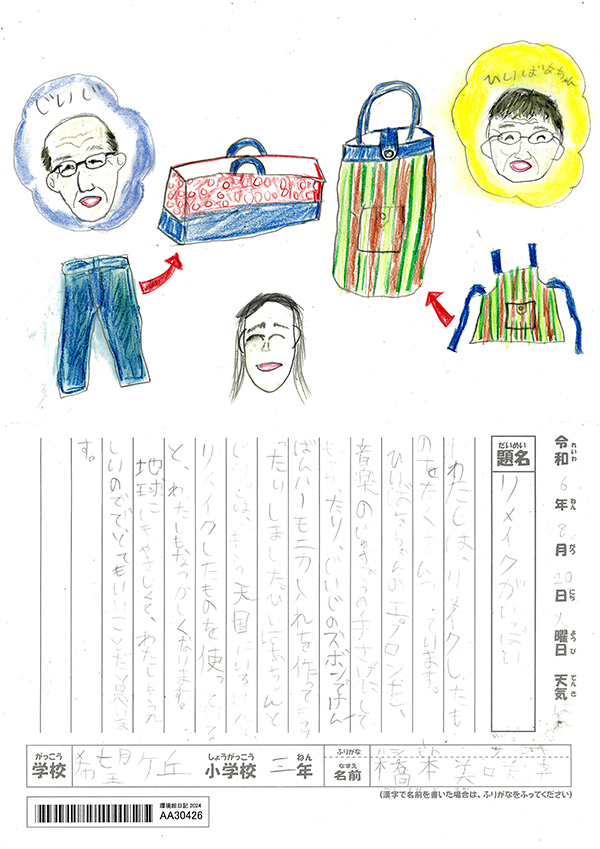 じいじ
ひいばあちゃん
令和 れいわ 6 年 ねん 8 月 がつ 20 日 にち 火 曜日 ようび 天気 てんき
だいめい
題名 リメイクがいっぱい
わたしは、リメイクしたも
のをたくさんつ ってます。
ひいばあちゃんのエプロンを、
音楽のじゅぎょうの手さげにして
もらったり、じいじのズボンでけん
ばんハーモニカ入れを作ってもらっ
たりしました。ひいばあちゃんと
じいじは、もう天国にいるけ
リメイクしたものを使って
と、わたしもなつかしくなります。
地球にもやさしくて、わたしもうれ
しいのでで、とてもいいことだと思いま
す。
がっこう 学校 希望ケ丘 しょうがっこう 小学校 三 ねん 年 ふりがな なまえ 名前 橋本 美
(漢字で名前を書いた場合は、ふりがなをふってください)
環境絵日記 2024
AA30426